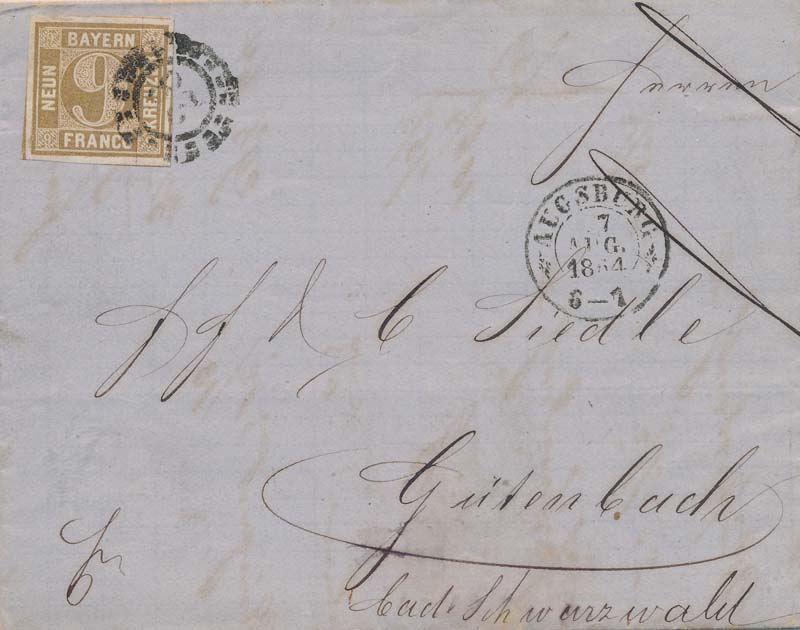 BAYERN
NEUN 9 KREUZ
FRANCO
Herren
AUGSBURG
7
AUG.
1864
6-7
C Siedle
Gütenbach
fr
bad. Schwarzwald